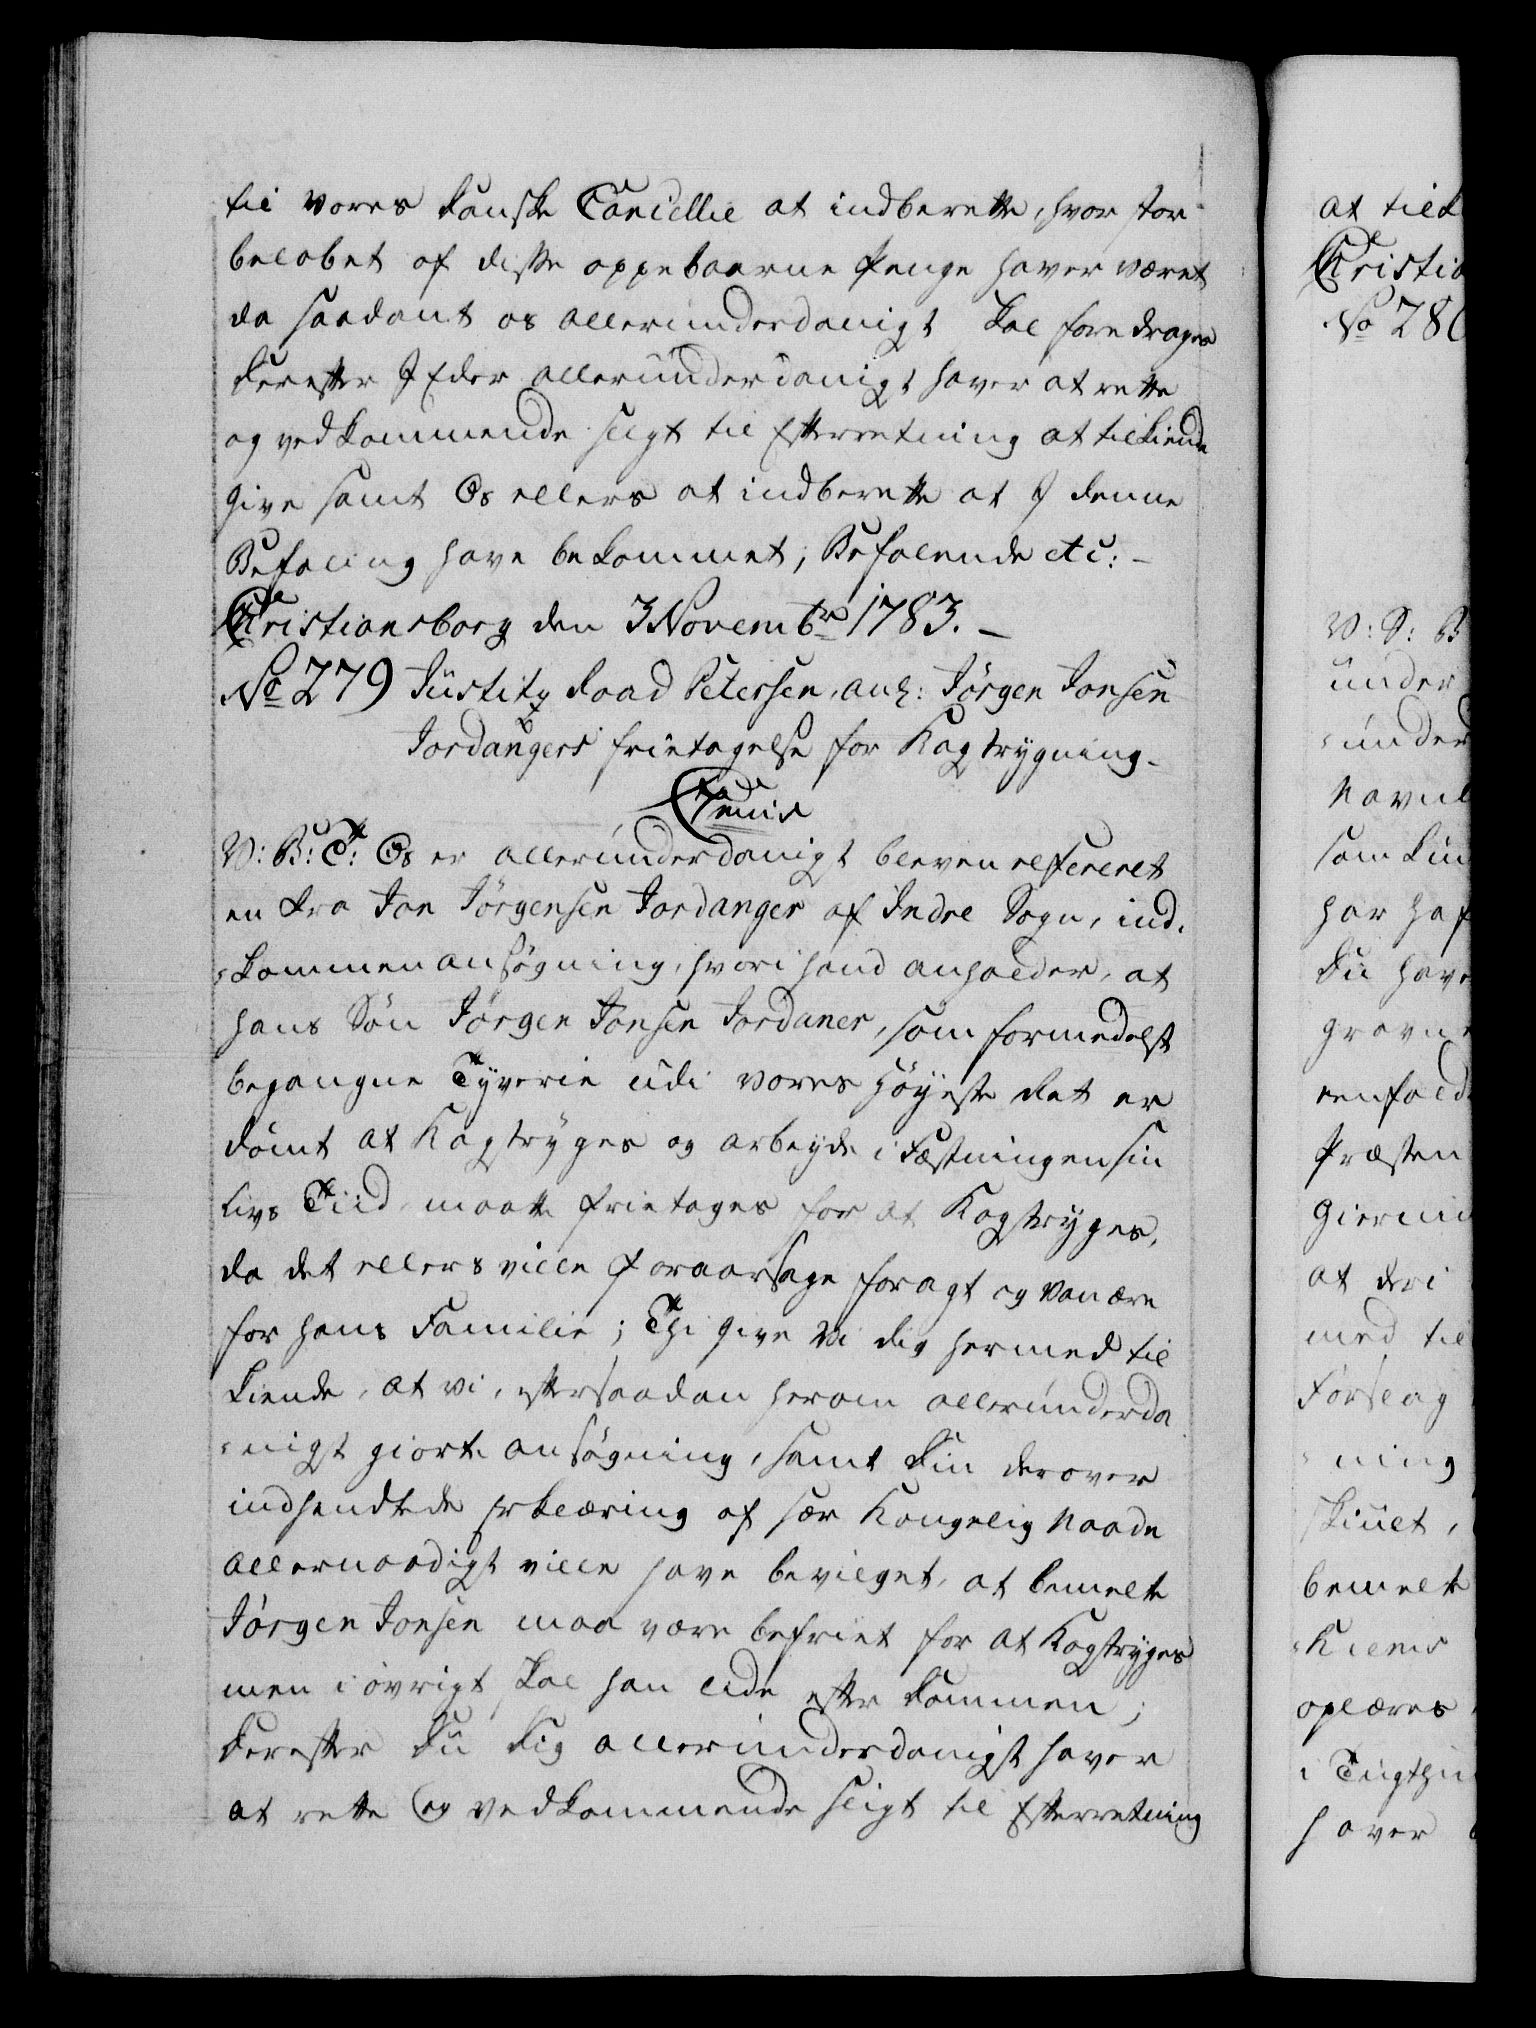 til vores danske Cancellie at indberette, hvor stor
belobet af disse oppebaarne Penge haver været
da saadant os allerunderdanigt skal foredrages
Derefter I Eder allerunderdanigt haver at rette
og vedkommende sligt til Efterretning at tilkiende
give samt Os ellers at indberette at I denne
Befaling have bekommet; Befalende etc: -
Christiansborg den 3 Novembr 1783. -
No 279 Justitz Raad Petersen, anl: Jörgen Jonsen
Jordangers frietagelse for Kagstrygning.
V: B: T: Os er allerunderdanigt bleven refereret
en fra Jon Jörgensen Jordanger af Indre Sogn, ind-
=kommen ansøgning, hvori hand anholder, at
hans Sön Jörgen Jonsen Jordaner, som formedelst
begangne Tyverie udi vores Höyeste Ret er
dömt at Kagstryges og arbeyde i Fæstningen sin
Livs Tiid, maatte frietages for at Kagstryges,
da det ellers ville foraarsage foragt og vanære
for hans Familie; Thi give Vi dig hermed til
kiende, at vi, efter saadan herom allerunderda
=nigst giorte ansøgning, samt Din derover
indsendte erklæring af sær Kongelig Naade
allernaadigst ville have bevilget, at bemelte
Jörgen Jonsen maa være befriet for at Kagstryges
men i övrigt skal han lide efter Dommen;
Derefter Du Dig allerunderdanigst haver
at rette og vedkommende sligt til Efterretning
at tilk
Christia
No 280
V: S: B
under
=under
Navnl
som
har haf
Du have
eenfold
Præsten
at
med til
Forslag
=ning
bemelte
oplæres
i Tugthu
haver